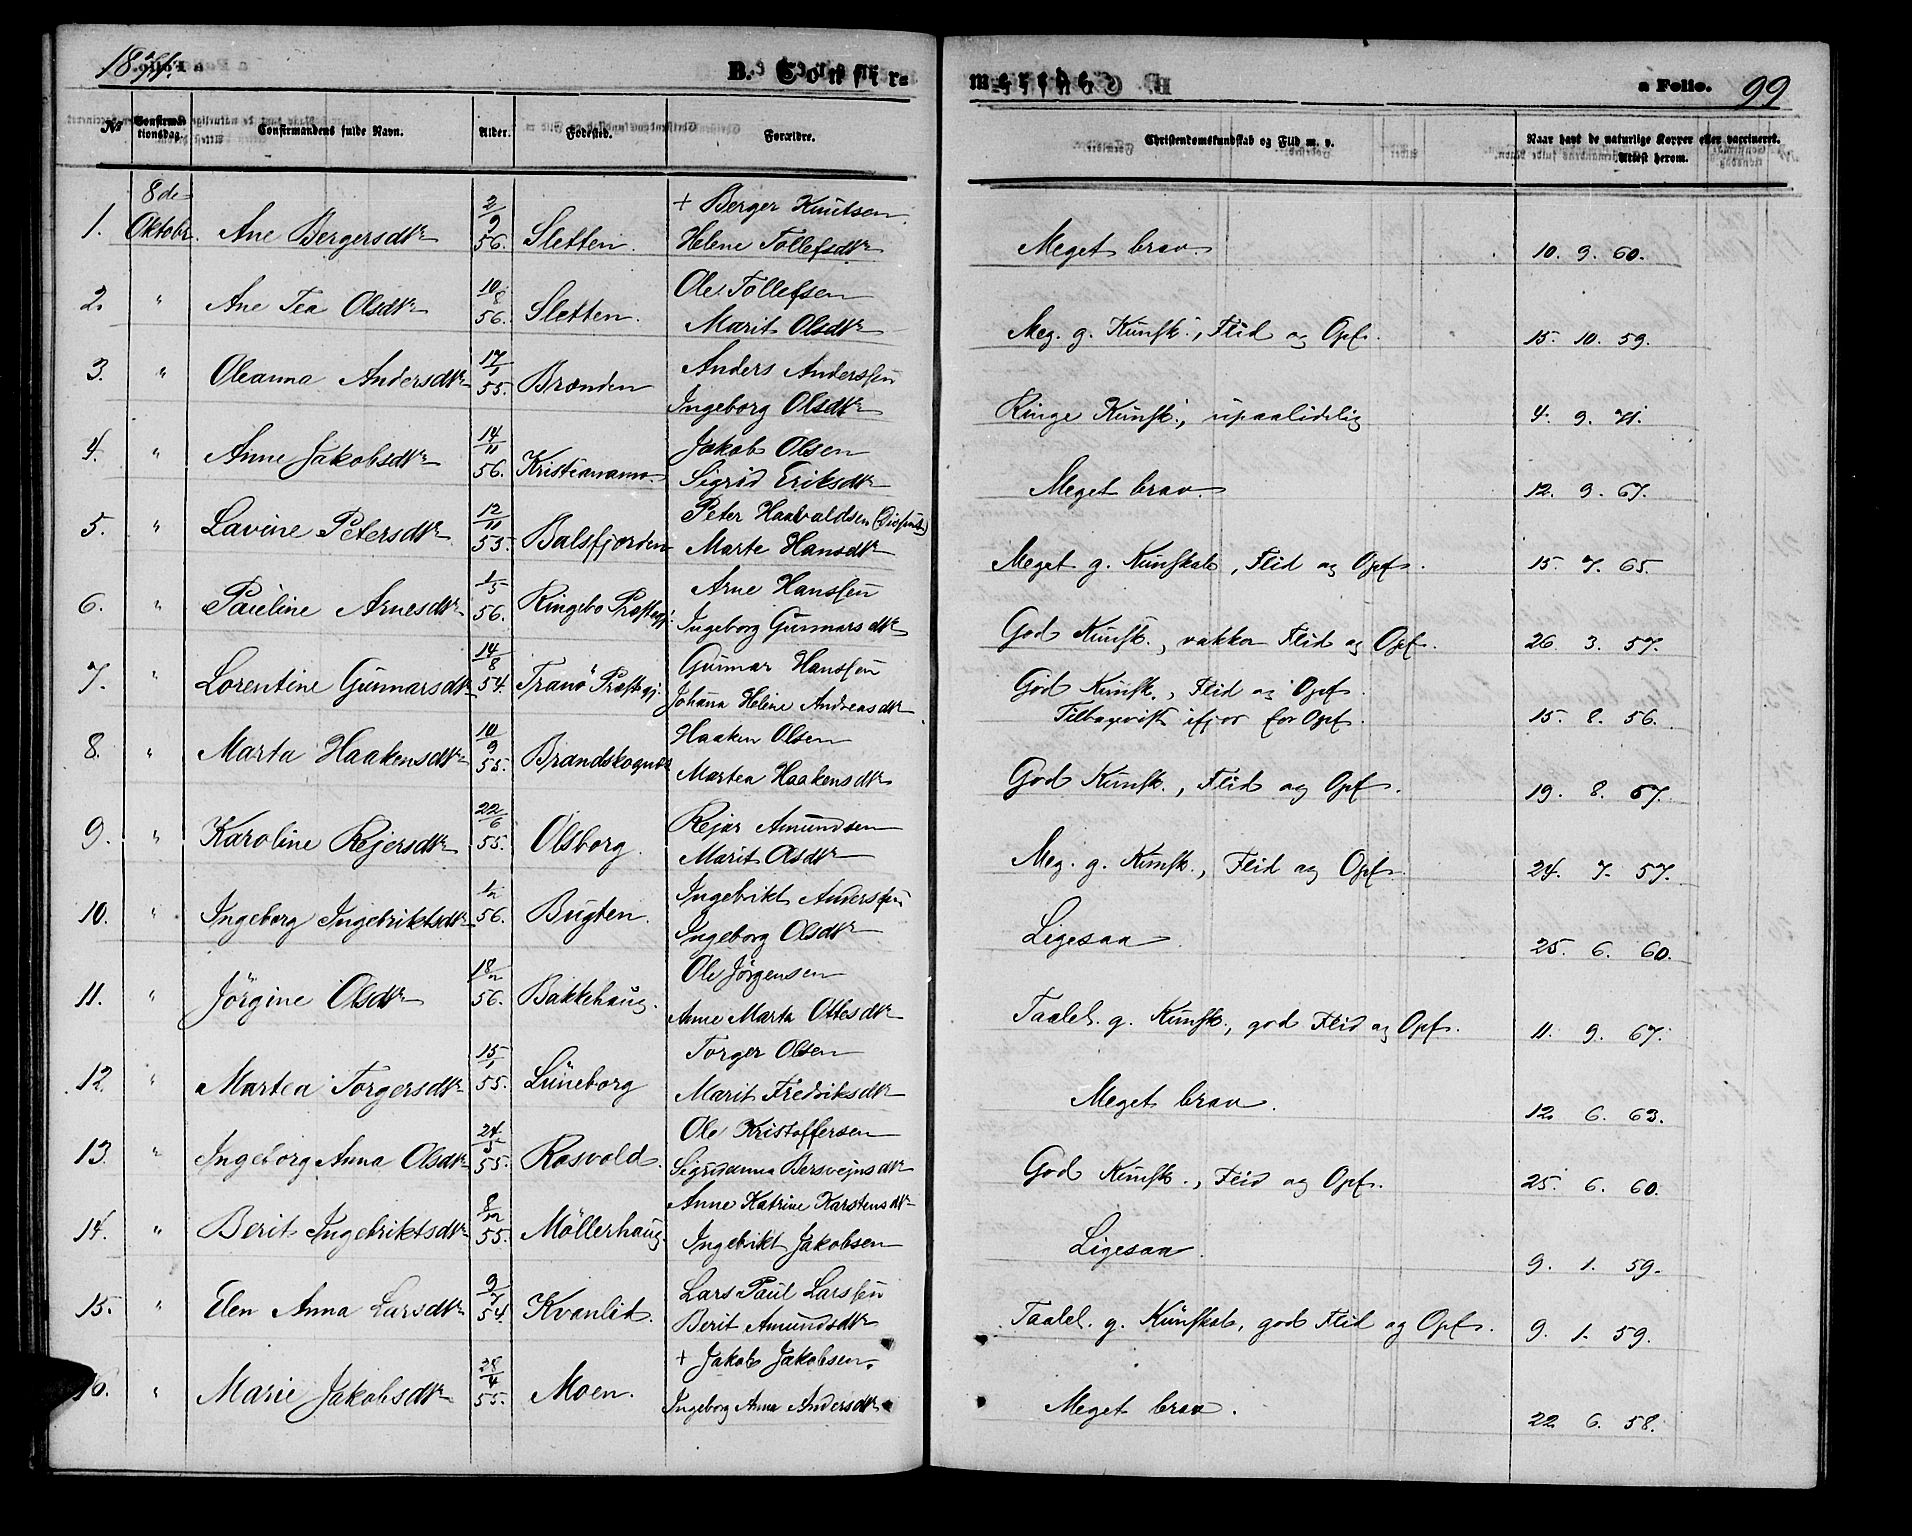 1871. B. Confir- merede. a Folio. 99
No Confirmationsdag. Confirmandens fulde Navn. Alder. Fødested. Forældre. Christendomskundskab og Flid m. v. Naar havt de naturlige Kopper eller vaccineret. Attest herom.
8de + Berger Knutsen
1. Oktobr. Ane Bergersdtr 2/9 56. Sletten. Helene Tollefsdtr Meget brav. 10. 9. 60.
Ole Tollefsen
2. " Ane Tea Olsdtr 10/8 56. Sletten. Marit Olsdtr Meg. g. Kunsk., Flid og Opf. 15. 10. 59.
Anders Anderssen
3. " Oleanna Andersdtr 17/1 55. Brænden Ingeborg Olsdtr Ringe Kunsk., upaalidelig 4. 9. 71.
Jakob Olsen
4. " Anne Jakobsdtr 14/11 56. Kristianamo Sigrid Eriksdtr Meget brav. 12. 9. 67.
Peter Haavaldsen
5. " Lavine Petersdtr 12/11 53. Balsfjorden Marte Hansdtr Meget g. Kunskab, Flid og Opf. 15. 7. 65.
Arne Hanssen
6. " Pauline Arnesdtr 1/5 56. Ringebo Præstegj. Ingeborg Gunnarsdtr God Kunsk., vakker Flid og Opf. 26. 3. 57.
Gunnar Hanssen God Kunsk., Flid og Opf.
7. " Lorentine Gunnarsdtr 14/8 54. Tranö Præstegj. Johana Helene Andreasdtr Tilbagevist ifjor for Opf. 15. 8. 56.
Haaken Olsen
8. " Marta Haakensdtr 10/9 55. Brandskognes Martea Haakensdtr God Kunsk., Flid og Opf. 19. 8. 67.
Rejer Amundsen
9. " Karoline Rejersdtr 22/6 55. Olsborg. Marit Olsdtr Meg. g. Kunsk., Flid og Opf. 24. 7. 57.
Ingebrikt Anderssen
10. " Ingeborg Ingebriktsdtr 1/2 56. Bugten. Ingeborg Olsdtr Ligesaa 25. 6. 60.
Ole Jörgensen
11. " Jörgine Olsdtr 18/2 56. Bakkehaug. Anne Marta Ottesdtr Taalel. g. Kunsk., god Flid og Opf. 11. 9. 67.
Torger Olsen
12. " Martea Torgersdtr 15/1 55. Lüneborg Marit Fredriksdtr Meget brav. 12. 6. 63.
Ole Kristoffersen
13. " Ingeborg Anna Olsdtr 24/5 55. Rosvold. Sigridanna Bersvejnsdtr God Kunsk., Flid og Opf. 25. 6. 60.
Anne Katrine Karstensdtr
14. " Berit Ingebriktsdtr 8/12 55. Möllerhaug. Ingebrikt Jakobsen Ligesaa. 9. 1. 59.
Lars Paul Larssen
15. " Elen Anna Larsdtr 9/7 54. Kvanlid. Berit Amundsdtr Taalel. g. Kunskab, god Flid og Opf. 9. 1. 59.
+ Jakob Jakobsen.
16. " Marie Jakobsdtr 28/4 55. Moen. Ingeborg Anna Andersdtr Meget brav. 22 6. 58.